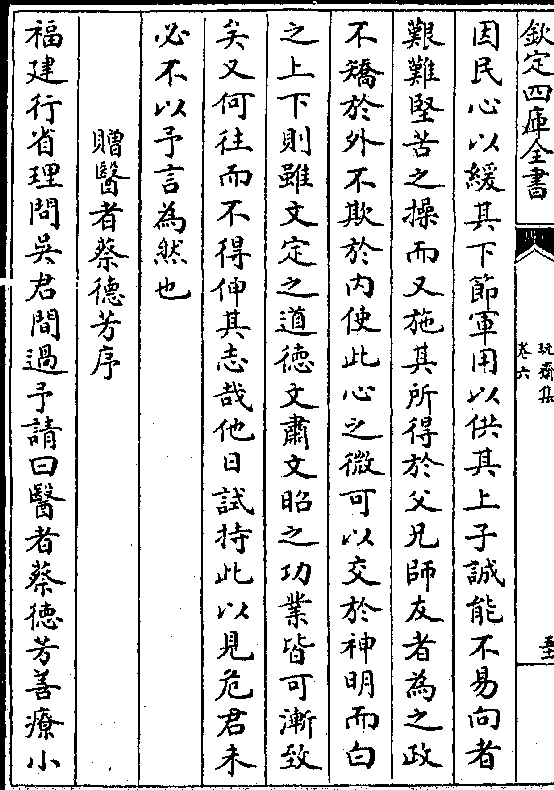 欽定四庫全書
玩齋集
卷六
因民心以緩其下節軍用以供其上子誠能不易向者
艱難堅苦之操而又施其所得於父兄師友者為之政
不矯於外不欺於内使此心之微可以交於神明而白
之上下則雖文定之道徳文肅文昭之功業皆可漸致
矣又何往而不得伸其志哉他日試持此以見危君未
必不以予言為然也
贈醫者蔡徳芳序
福建行省理問吳君間過予請曰醫者蔡徳芳善療小